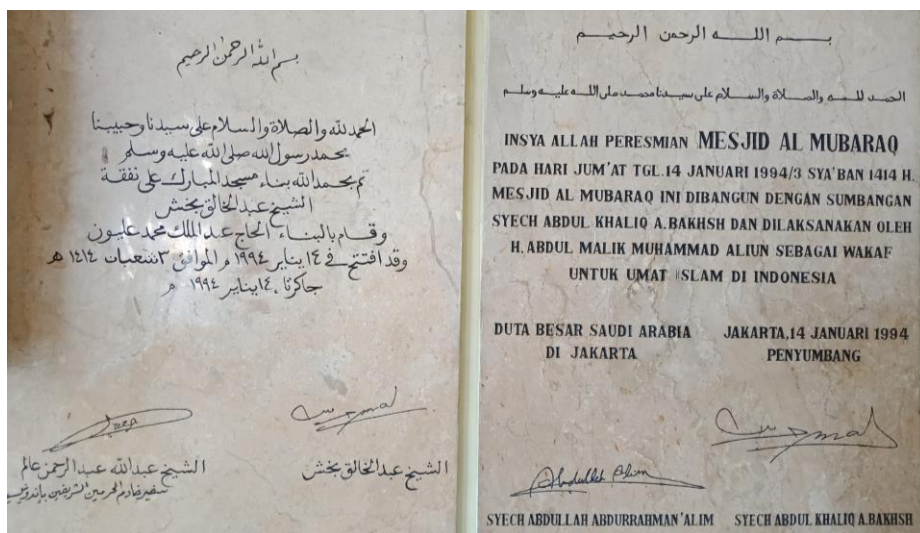 بسم الله الرحمن الرحيم
الحمد لله والصلاة والسلام على سيدنا وحبيبنا
محمد رسول الله صلى الله عليه وسلم
تم بحمد الله بناء مسجد المبارك على نفقة
الشيخ عبد الخالق بخش
وقام بالبناء الحاج عبد الملك محمد عليون
وقد افتتح في ١٤ يناير ١٩٩٤ م الموافق ٣ شعبان ١٤١٤ ھ
جاكرتا، ١٤ يناير ١٩٩٤ م
الشيخ عبد الله عبد الرحمن عالم
سفير خادم الحرمين الشريفين
الشيخ عبد الخالق بخش
بسم الله الرحمن الرحيم
الحمد لله والصلاة والسلام على سيدنا محمد صلى الله عليه وسلم
INSYA ALLAH PERESMIAN MESJID AL MUBARAQ
PADA HARI JUM'AT TGL.14 JANUARI 1994/3 SYA'BAN 1414 H.
MESJID AL MUBARAQ INI DIBANGUN DENGAN SUMBANGAN
SYECH ABDUL KHALIQ A.BAKHSH DAN DILAKSANAKAN OLEH
H. ABDUL MALIK MUHAMMAD ALIUN SEBAGAI WAKAF
UNTUK UMAT ISLAM DI INDONESIA
DUTA BESAR SAUDI ARABIA
DI JAKARTA
JAKARTA,14 JANUARI 1994
PENYUMBANG
Abdullah Alim
SYECH ABDULLAH ABDURRAHMAN 'ALIM
SYECH ABDUL KHALIQ A.BAKHSH